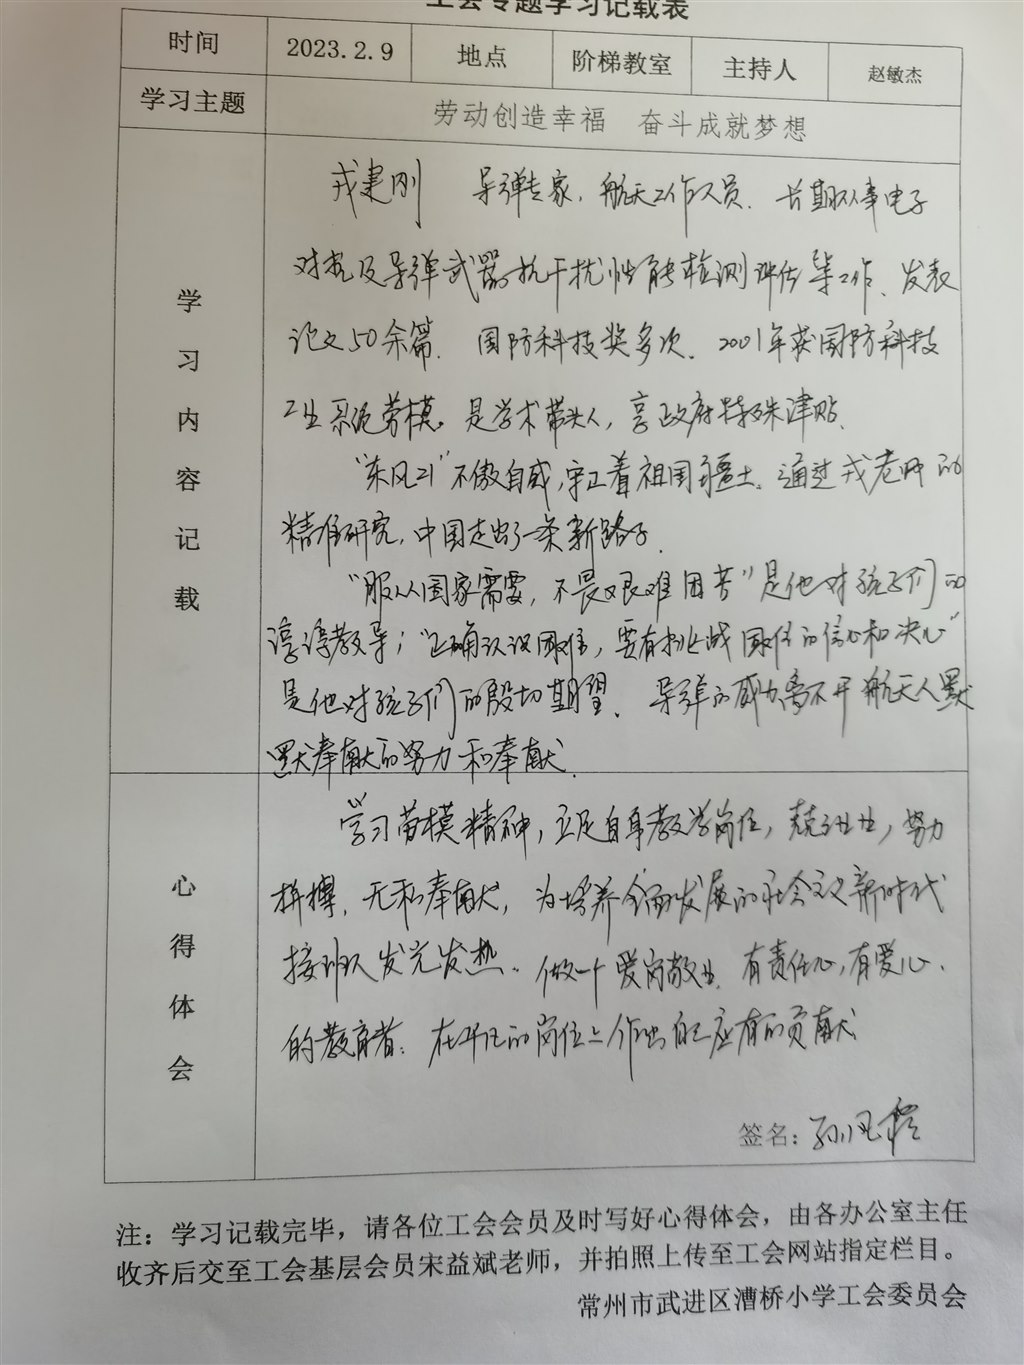 工会专题学习记载表
时间 2023.2.9 地点 阶梯教室 主持人 赵敏杰
学习主题 劳动创造幸福 奋斗成就梦想
学习内容记载
戎建刚 导弹专家,航天工作人员、长期从事电子
对抗及导弹武器抗干扰性能检测评估等工作、发表
论文50余篇、国防科技奖多次、2001年获国防科技
工业系统劳模。是学术带头人,享政府特殊津贴.
"东风21"不傲自威,守卫着祖国疆土。通过戎老师的
精准研究,中国走出了一条新路子.
"服从国家需要,不畏艰难困苦"是他对孩子们的
谆谆教导;"正确认识困难,要有挑战困难的信心和决心"
是他对孩子们的殷切期望、导弹的威力离不开航天人默
默奉献的努力和奉献.
心得体会
学习劳模精神,立足自身教学岗位,兢兢业业,努力
拼搏,无私奉献,为培养全面发展的社会主义新时代
接班人发光发热。做一个爱岗敬业、有责任心,有爱心、
的教育者;在平凡的岗位上作出自己应有的贡献
签名:
注:学习记载完毕,请各位工会会员及时写好心得体会,由各办公室主任
收齐后交至工会基层会员宋益斌老师,并拍照上传至工会网站指定栏目。
常州市武进区漕桥小学工会委员会